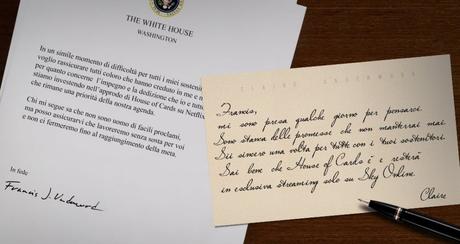 THE WHITE HOUSE
WASHINGTON
In un simile momento di difficoltà per tutti i miei sosteni
voglio rassicurare tutti coloro che hanno creduto in me e n
per quanto concerne l'impegno e la dedizione che io e tut
stiamo investendo nell'approdo di House of Cards su Netflix
che rimane una priorità della nostra agenda.
Chi mi segue sa che non sono uomo di facili proclami,
ma posso assicurarvi che lavoreremo senza sosta per voi
e non ci fermeremo fino al raggiungimento della meta.
In fede
Francis J. Underwood
CLAIRE UNDERWOOD
Francis,
mi sono presa qualche giorno per pensarci.
Sono stanca delle promesse che non manterrai mai.
Sii sincero una volta per tutte con i tuoi sostenitori.
Sai bene che House of Cards è e resterà
in esclusiva streaming solo su Sky Online.
Claire